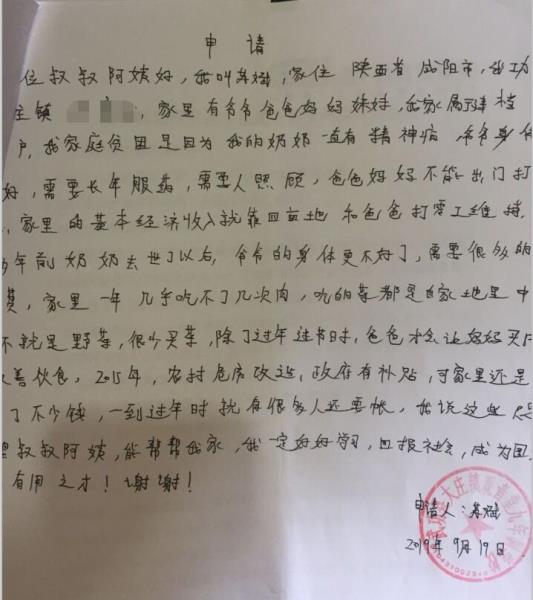 申 请
位叔叔阿姨好，我叫苏斌，家住 陕西省 咸阳市，武功
庄镇，家里有爷爷爸爸妈妈妹妹，我家属建档
户，我家庭贫困是因为我的奶奶一直有精神病 爷爷身体
好，需要长年服药，需要人照顾，爸爸妈妈不能出门打
，家里的基本经济收入就靠四亩地 和爸爸打零工维持，
年前奶奶去世了以后，爷爷的身体更不好了，需要很多的
费，家里一年几乎吃不了几次肉，吃的菜都是自家地里中
不就是野菜，很少买菜，除了过年过节时，爸爸才会让妈妈买
改善饮食。2015年，农村危房改造，政府有补贴，可家里还是
了不少钱，一到过年时就有很多人还要帐，我说这些只
望叔叔阿姨，能帮帮我家，我一定好好学习，回报社会，成为国
有用之才！谢谢！
申请人：苏斌
2019年9月19日